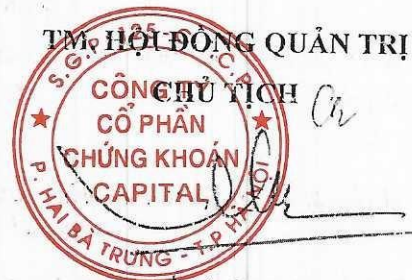 TM. HỘI ĐỒNG QUẢN TRỊ
CHỦ TỊCH
CÔNG TY
CỔ PHẦN
CHỨNG KHOÁN
CAPITAL
P. HAI BÀ TRƯNG - T.P HÀ NỘI